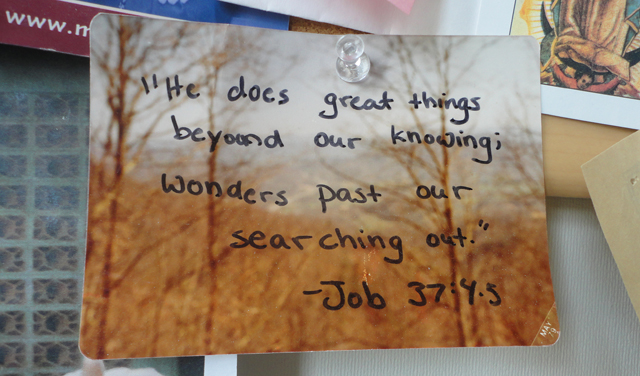 www.m
"He does great things
beyond our knowing;
wonders past our
searching out."
-Job 37:4.5
MAY
79